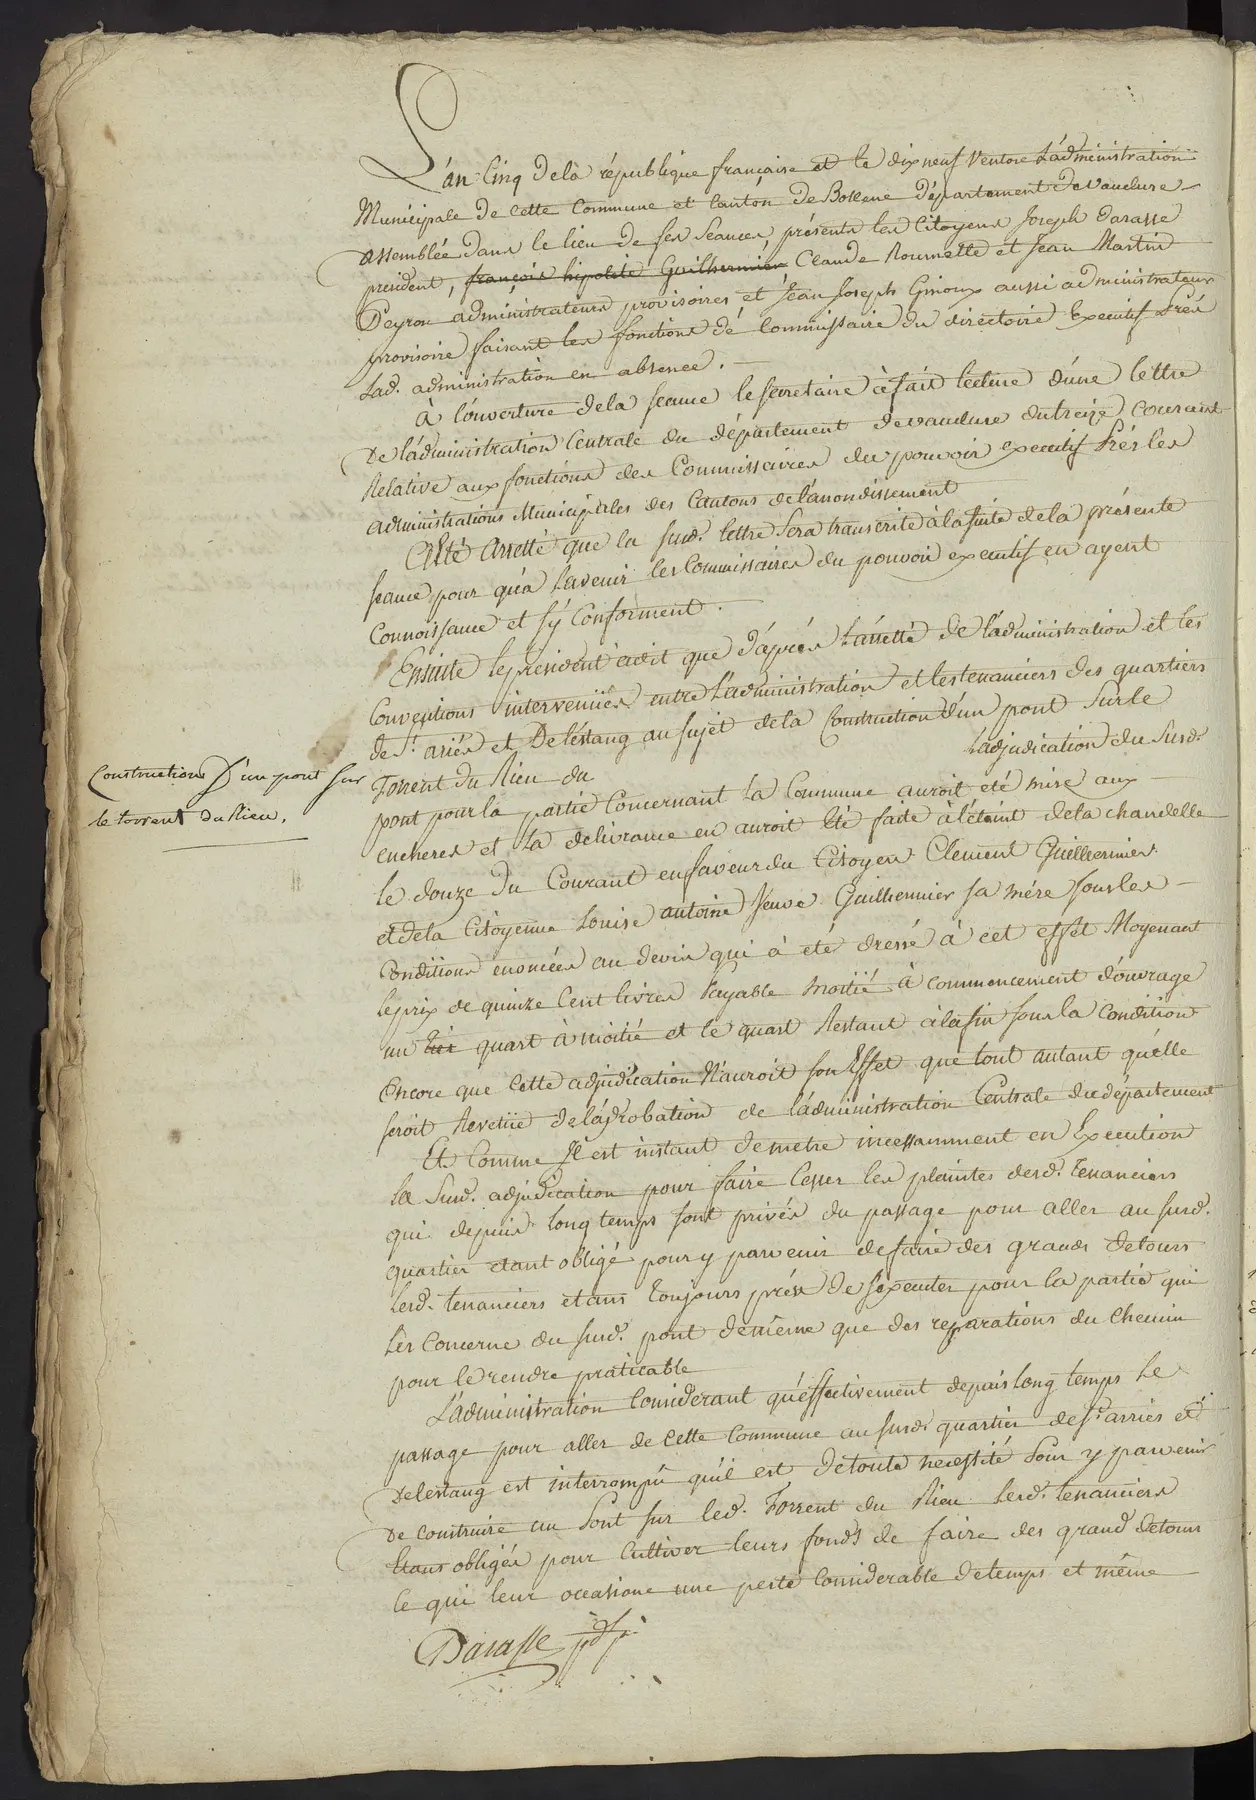 L'an Cinq de la république française et le dix neuf Ventose L'administration
Municipale de cette Commune et Canton de Bollene département de Vaucluse
assemblée dans le lieu de ses seances, présents les Citoyens Joseph Darasse
président, françois hipolite Guilhermier Claude Roumette et Jean Martin
Peyron administrateurs provisoires et Jean Joseph Ginoux aussi administrateur
provisoire faisant les fonctions de Commissaire du directoire Executif Prés
Lad. administration en absence.
à l'ouverture de la seance le secretaire à fait lecture d'une lettre
de l'administration Centrale du département de vaucluse du treize courant
Relative aux fonctions des Commissaires du pouvoir executif Prés les
administrations Municipales des Cantons de l'arrondissement
à été Arretté que la susd. lettre sera transcrite à la suite de la présente
seance pour qu'a l'avenir les Commissaires du pouvoir executif en ayent
Connoissance et s'y Conforment.
Ensuite le président à dit que d'aprés L'arretté de l'administration et les
Conventions intervenües entre L'administration et les tenanciers des quartiers
de St. ariés et De léstang au sujet de la Construction d'un pont sur le
Torrent du Rieu du L'adjudication du susd.
Construction d'un pont sur
le torrent du Rieu.
pont pour la partie Concernant la Commune auroit eté mise aux
encheres et la délivrance en auroit été faite à l'éteint de la chandelle
le douze du Courant en faveur du Citoyen Clement Guilhermier
et de la Citoyenne Louise antoine Veuve Guilhermier sa mére sous les
Conditions énoncées au devis qui à été dressé à cet effét Moyenant
le prix de quinze Cent livres Payable moitié à commencement d'ouvrage
un quart à moitié et le quart Restant à la fin sous la Condition
encore que Cette adjudication N'auroit son Effet que tout autant qu'elle
seroit Revetüe de l'aprobation de l'administration Centrale du département
Et Comme Il est instant de metre incessamment en Execution
la Susd. adjudication pour faire Cesser les plaintes desd. tenanciers
qui depuis long temps sont privés du passage pour aller au susd.
quartier etant obligé pour y parvenir de faire des grands detours
Lesd. tenanciers etans toujours préts de s'executer pour la partie qui
les Concerne du susd. pont de même que des reparations du Chemin
pour le rendre praticable
L'administration Considerant qu'éffectivement depuis long temps le
passage pour aller de cette Commune au susd. quartier de St. arriés et
de Lestang est interrompû qu'il est de toute necessité Pour y parvenir
de construire un Pont sur led. Torrent du Rieu Lesd. tenanciers
étans obligés pour Cultiver leurs fonds de faire des grand detours
Ce qui leur occasione une perte Considerable de temps et même
Darasse pdt